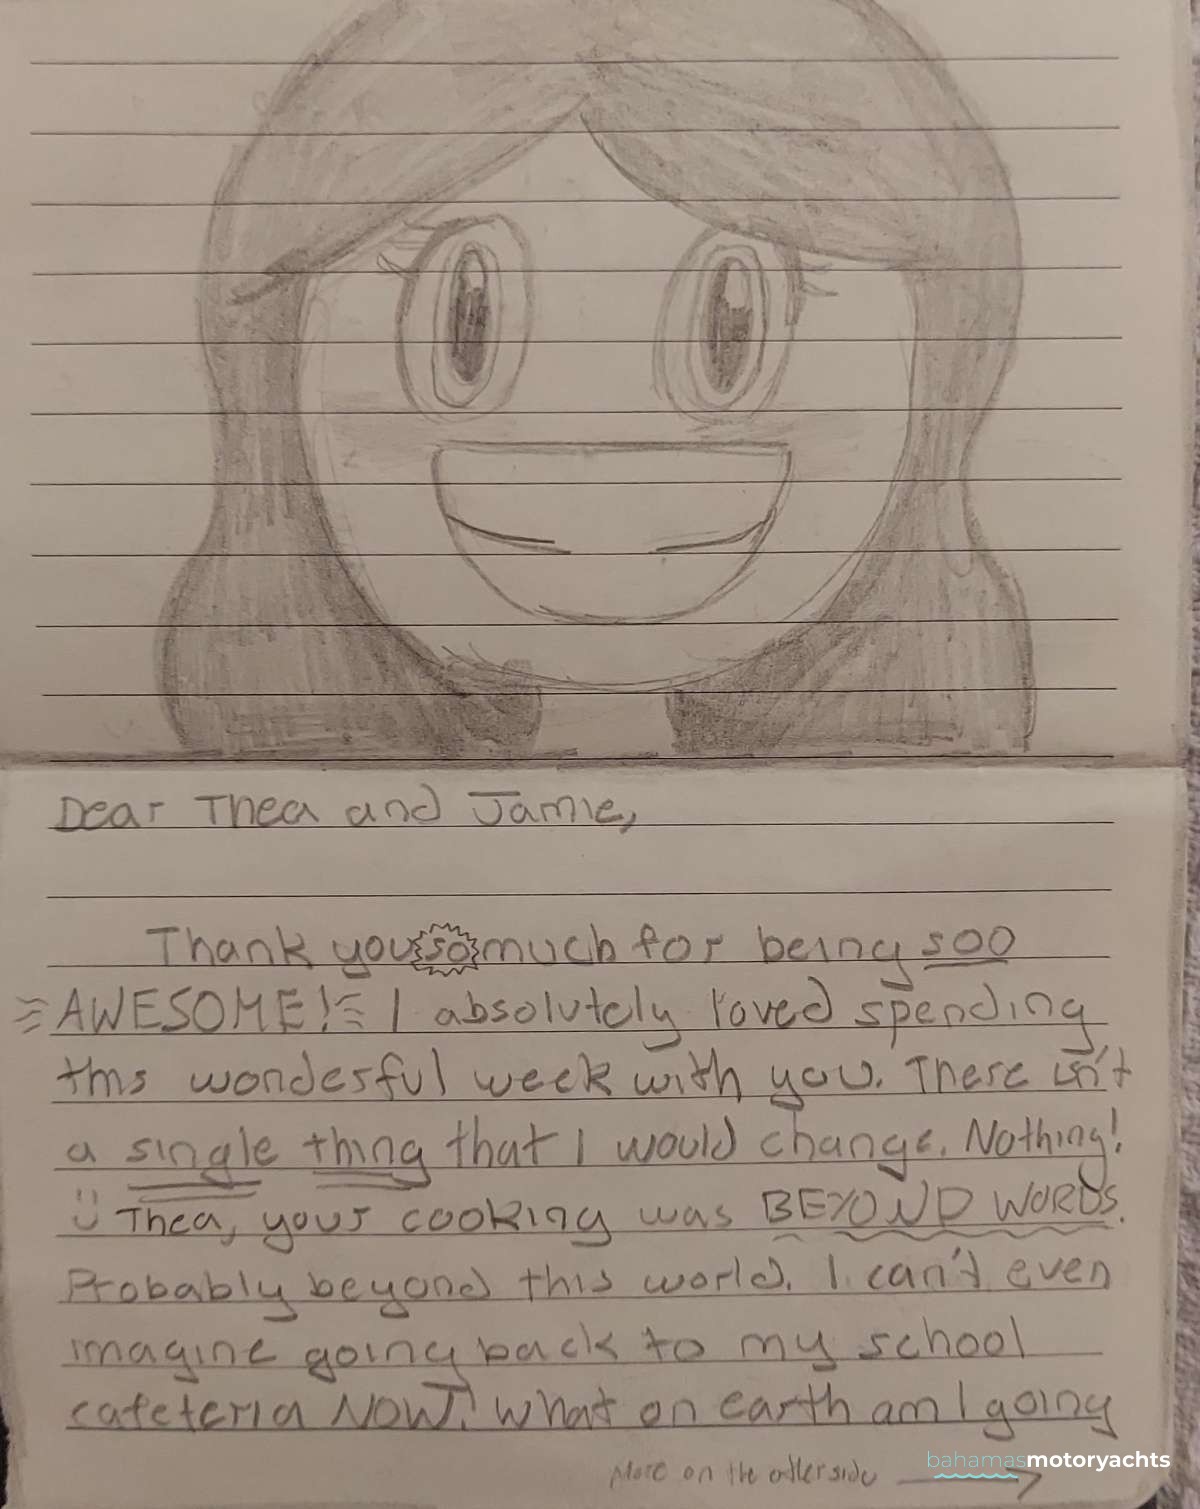 Dear Thea and Jamie,
Thank you so much for being soo
AWESOME! I absolutely loved spending
this wonderful week with you. There isn't
a single thing that I would change. Nothing!
Thea, your cooking was BEYOND WORDS.
Probably beyond this world. I can't even
imagine going back to my school
cafeteria NOW! What on earth am I going
More on the other side
bahamasmotoryachts